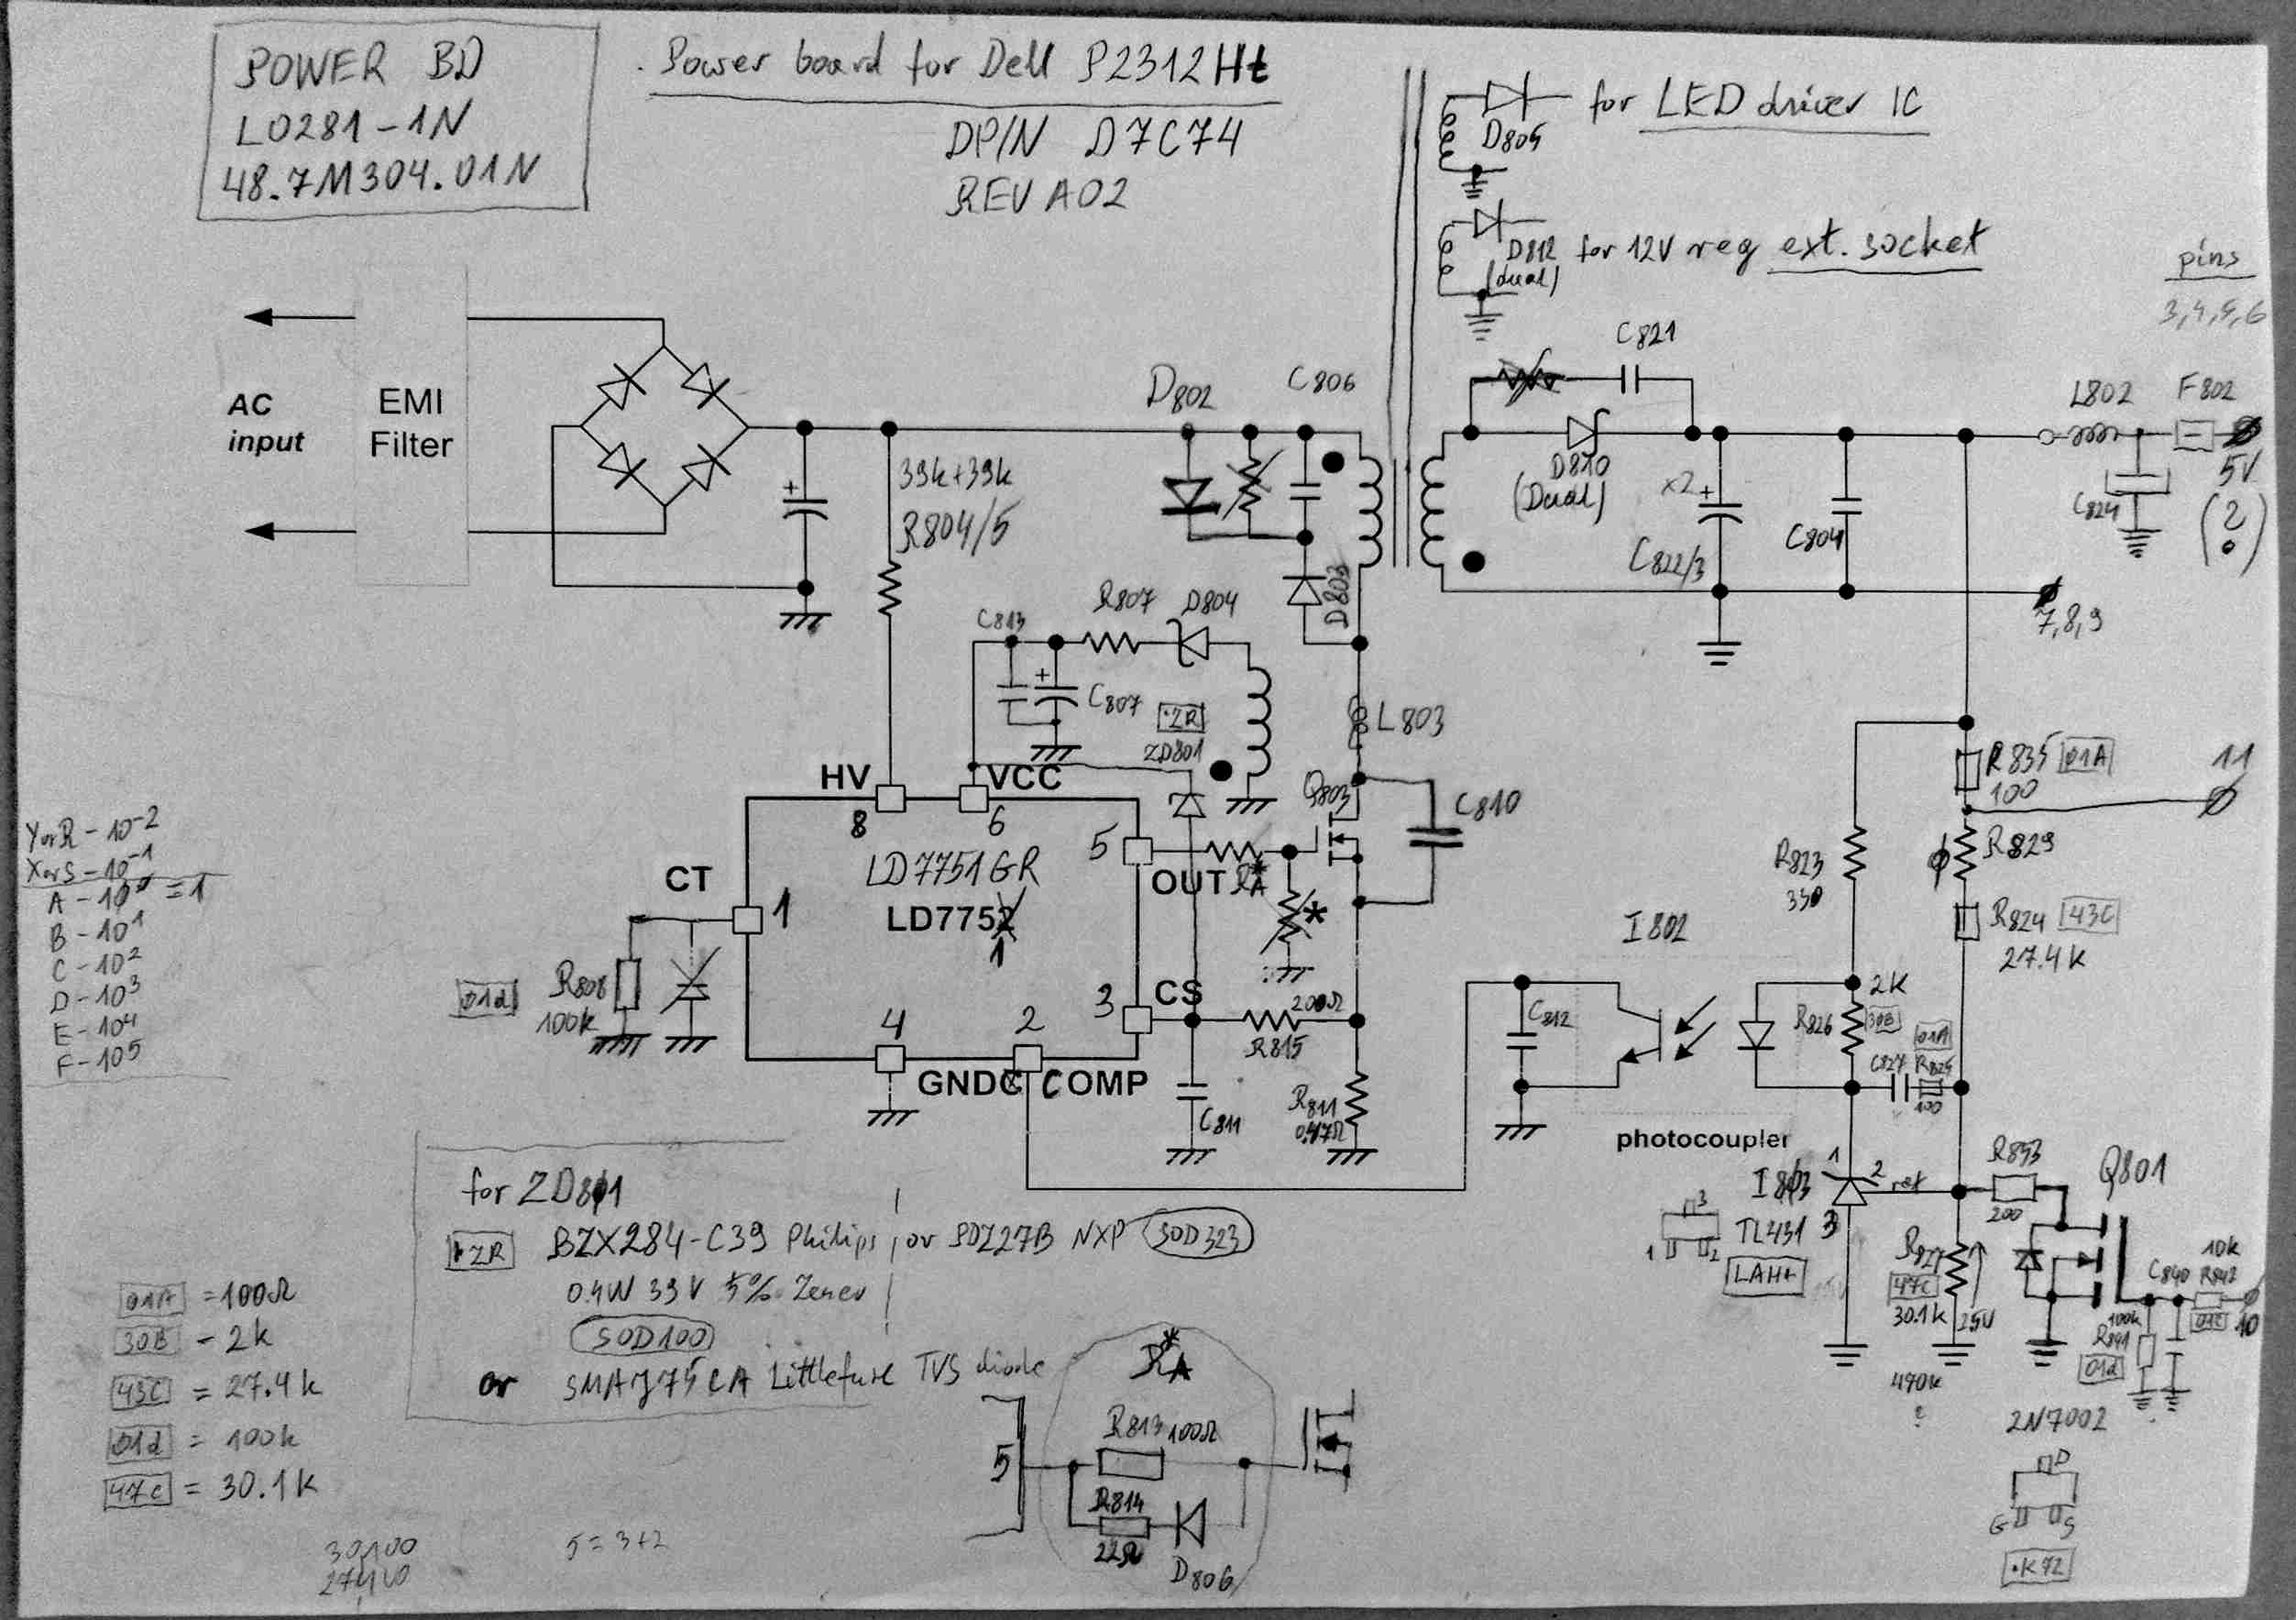 POWER BD
L0281-1N
48.7M304.01N
Power board for Dell P2312Ht
DP/N D7C74
REV A02
D805
for LED driver IC
D812
(dual)
for 12V reg ext. socket
pins
3,4,5,6
AC
input
EMI
Filter
39k+39k
R804/5
D802
C806
C821
D810
(Dual)
x2
+
C822/3
C804
L802
F802
C824
5V
(?)
7,8,9
+
C813
R807
D804
D803
+
C807
2R
ZD801
L803
Q803
C810
HV
VCC
8
6
5
OUT
R*A
*
LD7751GR
LD7752
1
CT
1
01d
R808
100k
4
2
3
CS
GND
COMP
200Ω
R815
C811
R811
0.47Ω
YorR - 10-2
XorS - 10-1
A - 100 = 1
B - 101
C - 102
D - 103
E - 104
F - 105
R835
01A
100
11
R829
R823
330
R824
43C
27.4k
I802
C812
2k
R826
30B
01A
C827
R825
100
photocoupler
I803
TL431
LAH+
1
2
ref
3
3
1
2
R893
200
Q801
R827
47c
30.1k
2.5V
470k
?
C840
10k
R842
01c
10
100k
R841
01d
2N7002
D
G
S
.K72
for ZD801
2R
BZX284-C39 Philips or PDZ27B NXP
SOD323
0.4W 39V 5% Zener
SOD100
or SMAJ75CA Littlefuse TVS diode
R*A
5
R813
100Ω
R814
22Ω
D806
01A = 100Ω
30B - 2k
43C = 27.4k
01d = 100k
47c = 30.1k
30100
27400
5 = 3+2